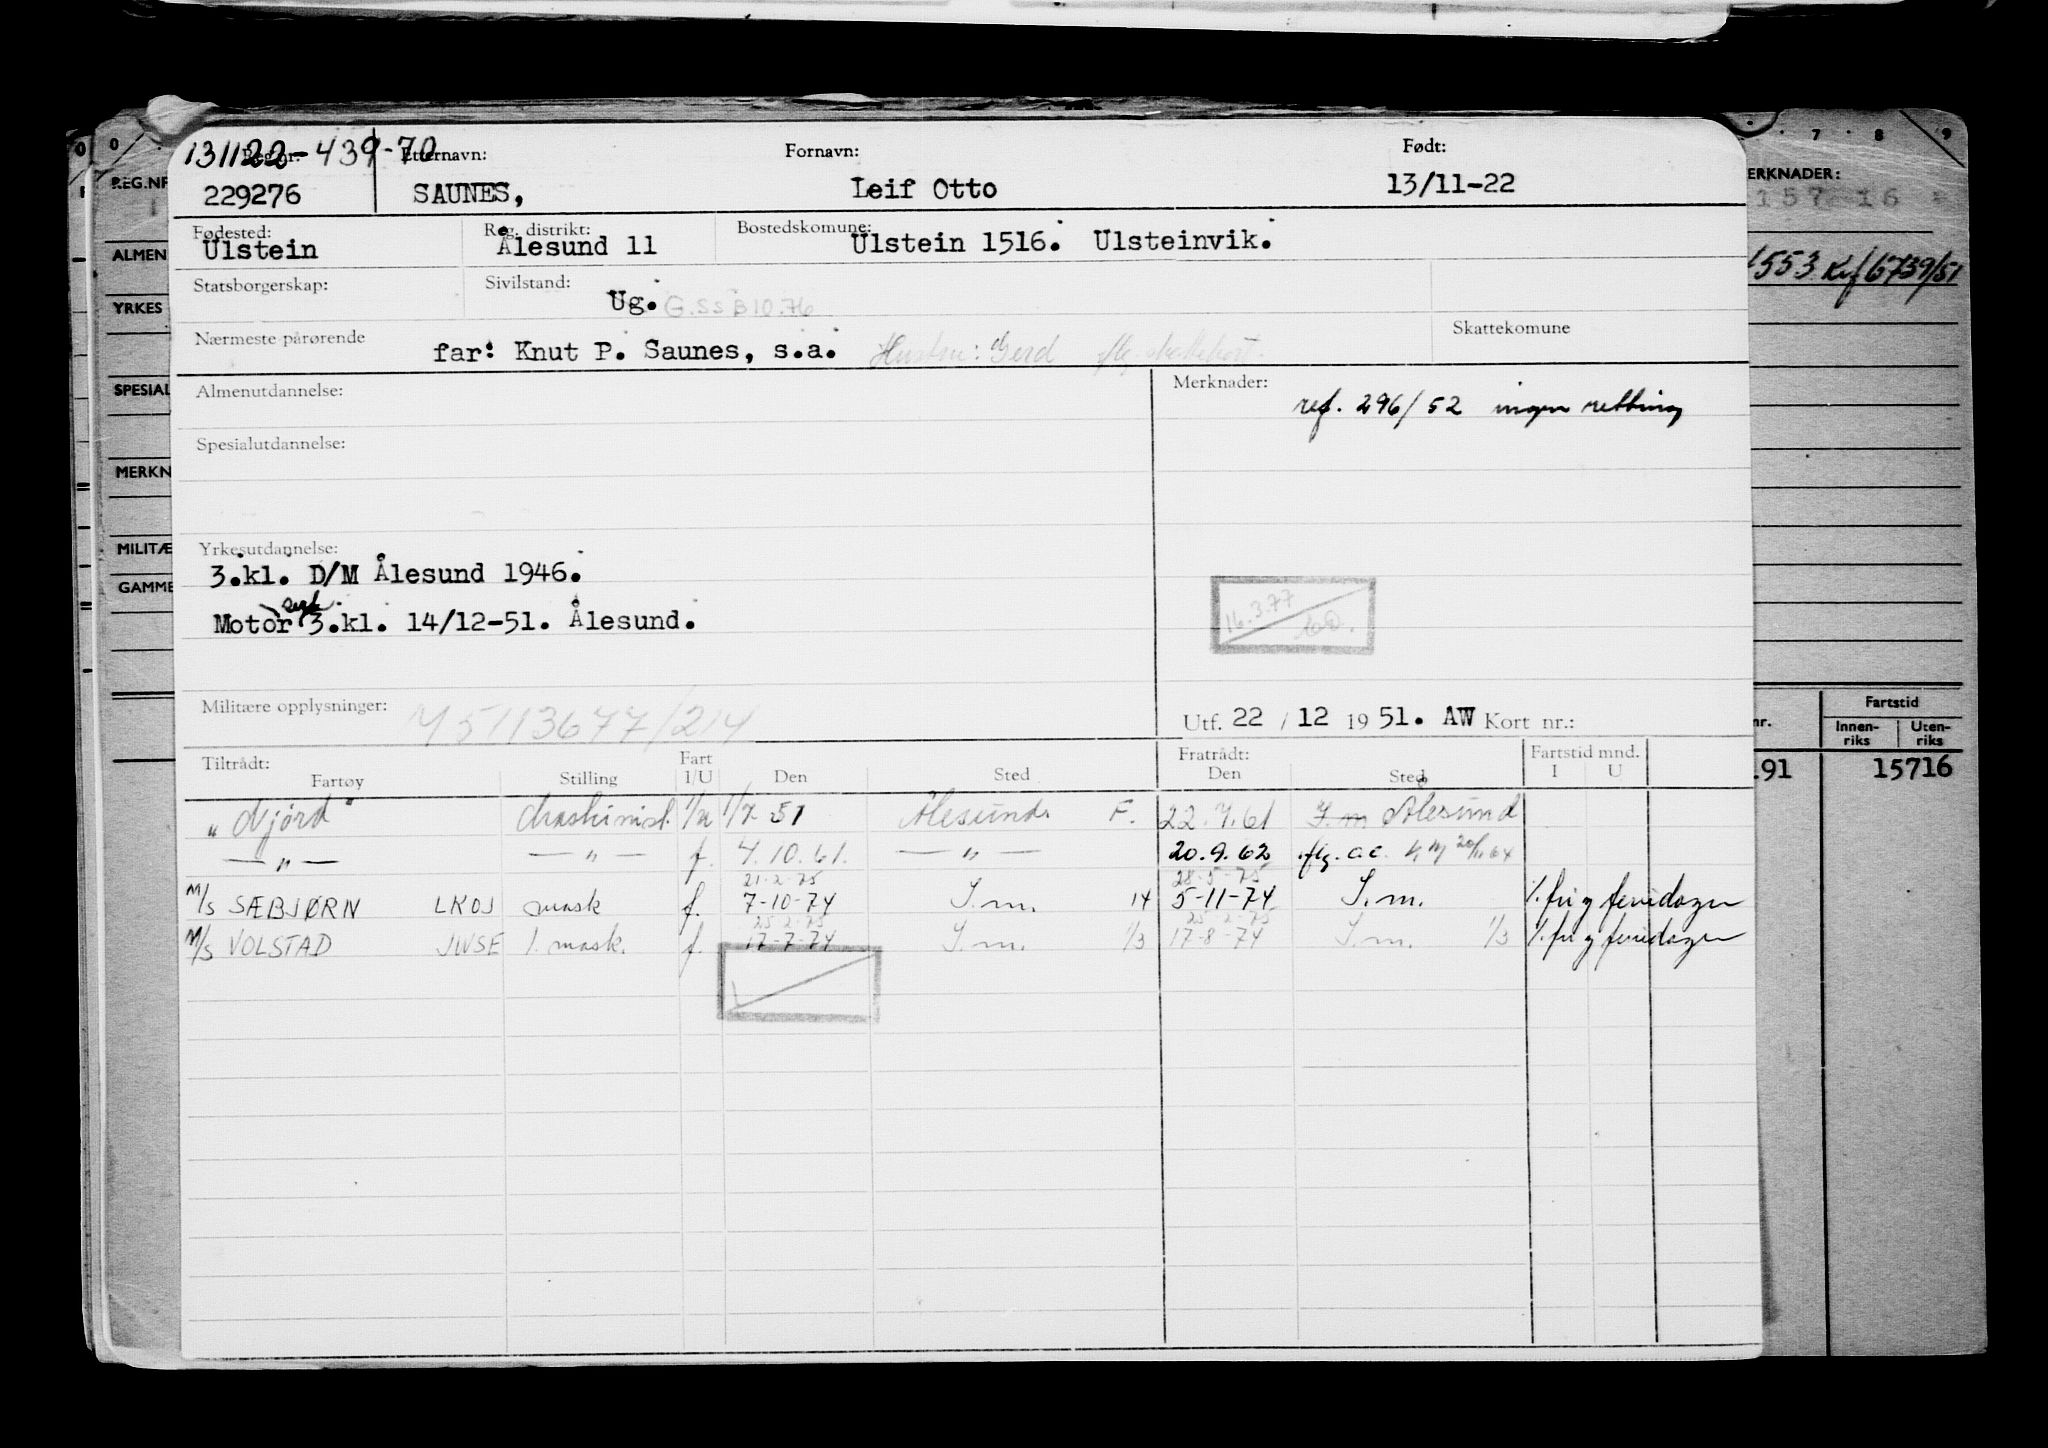 131122-439-70
Reg.nr. Etternavn: Fornavn: Født:
229276 SAUNES, Leif Otto 13/11-22
Fødested: Reg. distrikt: Bostedskommune:
Ulstein Ålesund 11 Ulstein 1516. Ulsteinvik.
Statsborgerskap: Sivilstand:
Ug. G.SSB 10.76
Nærmeste pårørende Skattekomune
far: Knut P. Saunes, s.a. Hustru: Gerd
Almenutdannelse: Merknader:
ref. 296/52 ingen retting
Spesialutdannelse:
Yrkesutdannelse:
3.kl. D/M Ålesund 1946.
Motor 3.kl. 14/12-51. Ålesund.
16.3.77
Militære opplysninger: M5113677/214
Utf. 22 / 12 19 51. AW Kort nr.:
Tiltrådt: Fart Fratrådt: Fartstid mnd.
Fartøy Stilling I/U Den Sted Den Sted I U
"Njörd" Maskinist 1/7 51 Ålesund F. 22.7.61 I.m Ålesund
— " — — " — f. 4.10.61. — " — 20.9.62 flg. a.c.
21-2-75 28-5-75
M/S SÆBJØRN LKOJ mask f. 7-10-74 I.m. 14 5-11-74 I.m. %.fri g feriedager
25-2-75 25-2-75
M/S VOLSTAD JWSE 1. mask. f. 17-7-74 I.m. 1/3 17-8-74 I.m. 1/3 %.fri g feriedager
REG.NR
ALMEN
YRKES
SPESIAL
MERKN
MILITÆ
GAMME
7 8 9
ERKNADER:
15716
553 Kf 6739/51
nr. Fartstid
Innen-riks Uten-riks
.91 15716